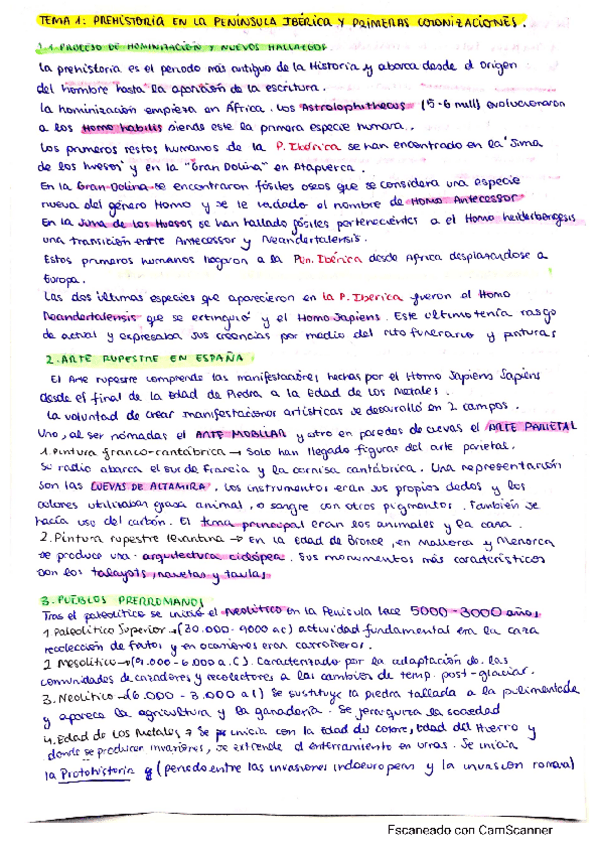 TEMA 1: PREHISTORIA EN LA PENÍNSULA IBÉRICA Y PRIMERAS COLONIZACIONES.
1.1 PROCESO DE HOMINIZACIÓN Y NUEVOS HALLAZGOS
La prehistoria es el periodo más antiguo de la Historia y abarca desde el origen
del hombre hasta la aparición de la escritura.
La hominización empieza en África. Los Astrolophitheous (5-6 mill) evolucionaron
a los Homo habilis siendo este la primera especie humana.
Los primeros restos humanos de la P. Ibérica se han encontrado en la "Sima
de los huesos" y en la "Gran Dolina" en Atapuerca.
En la Gran Dolina se encontraron fósiles oseos que se considera una especie
nueva del género Homo y se le ha dado el nombre de Homo Antecessor
En la Sima de los Huesos se han hallado fósiles pertenecientes a el Homo heidelbergesis
una transición entre Antecessor y Neandertalensis.
Estos primeros humanos llegaron a la Pen. Ibérica desde Africa desplazandose a
Europa.
Las dos últimas especies que aparecieron en la P. Iberica fueron el Homo
Neandertalensis que se extinguió y el Homo Sapiens. Este último tenía rasgo
de actual y expresaba sus creencias por medio del rito funerario y pinturas
2. ARTE RUPESTRE EN ESPAÑA
El Arte rupestre comprende las manifestaciones hechas por el Homo Sapiens Sapiens
desde el final de la Edad de Piedra a la Edad de los Metales.
La voluntad de crear manifestaciones artísticas se desarolló en 2 campos.
Uno, al ser nómadas el ARTE MOBILIAR y otro en paredes de cuevas el ARTE PARIETAL
1. Pintura franco-cantábrica → Solo han llegado figuras del arte parietas.
Su radio abarca el sur de Francia y la cornisa cantábrica. Una representación
son las CUEVAS DE ALTAMIRA. Los instrumentos eran sus propios dedos y los
colores utilizaban grasa animal, o sangre con otros pigmentos. También se
hacía uso del carbón. El tema principal eran los animales y la caza.
2. Pintura rupestre levantina → en la Edad de Bronce, en Mallorca y Menorca
se produce una arquitectura ciclópea. Sus monumentos más característicos
son los talayots, navetas y taulas
3. PUEBLOS PRERROMANOS
Tras el paleolítico se inició el Neolítico en la Península hace 5000-3000 años
1 Paleolítico Superior → (30.000-9000 ac) actividad fundamental era la caza
recolección de frutos y en ocasiones eran carroñeros.
2 Mesolítico → (9.000-6.000 a.C). Caracterizado por la adaptación de las
comunidades de cazadores y recolectores a los cambios de temp. post-glaciar.
3. Neolítico → (6.000-3.000 a.) Se sustituye la piedra tallada a la pulimentada
y aparece la agricultura y la ganadería. Se jerarquiza la sociedad
4. Edad de los Metales → Se inicia con la Edad del cobre, Edad del Hierro y
donde se producen invasiones, se extiende el enterramiento en urnas. Se inicia
la Protohistoria (periodo entre las invasiones indoeuropeas y la invasión romana)
Escaneado con CamScanner